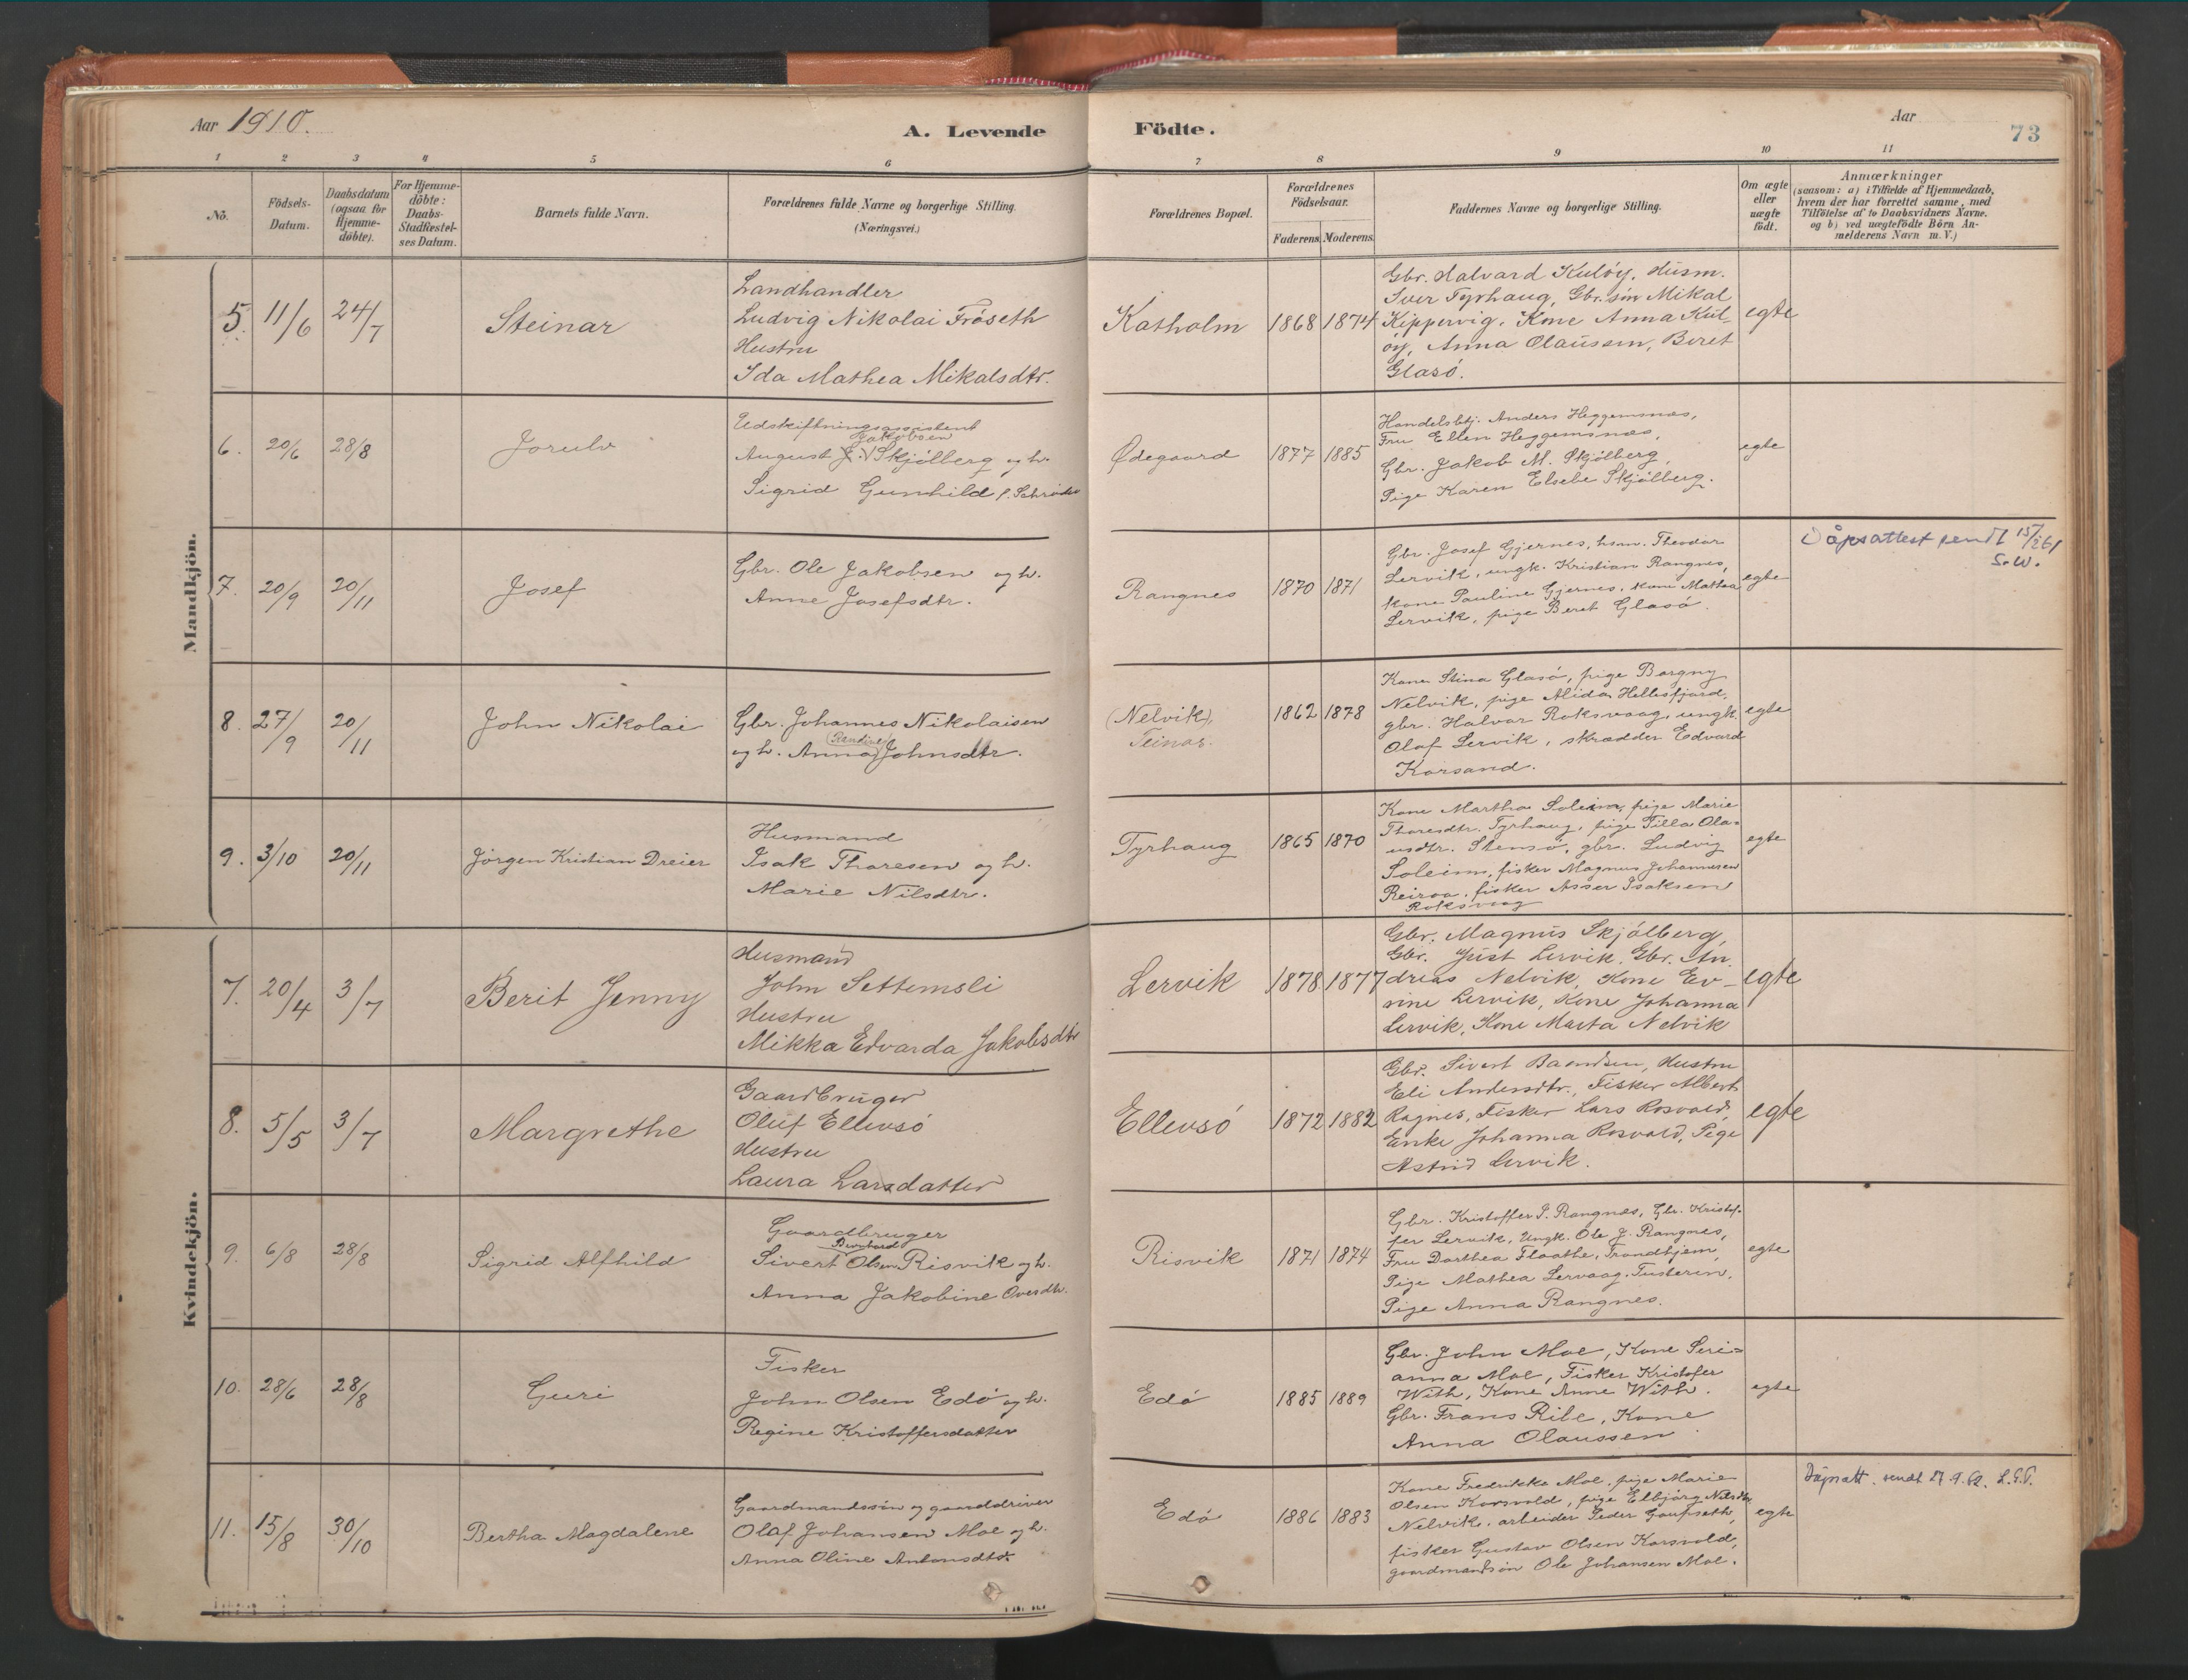 Aar 1910.
A. Levende
Födte.
Aar
73
1 2 3 4 5 6 7 8 9 10 11
No.
Födsels-
Datum.
Daabsdatum
(ogsaa for
Hjemme-
döbte).
For Hjemme-
döbte:
Daabs-
Stadfæstel-
ses Datum.
Barnets fulde Navn.
Forældrenes fulde Navne og borgerlige Stilling.
(Næringsvei.)
Forældrenes Bopæl.
Forældrenes
Födselsaar.
Faderens. Moderens.
Faddernes Navne og borgerlige Stilling.
Om ægte
eller
uægte
födt.
Anmærkninger
(saasom: a) i Tilfælde af Hjemmedaab,
hvem der har forrettet samme, med
Tilföielse af to Daabsvidners Navne.
og b) ved uægtefödte Börn An-
melderens Navn m. V.)
Mandkjön.
5. 11/6 24/7
Steinar
Landhandler
Ludvig Nikolai Fröseth
Hustru
Ida Mathea Mikalsdtr.
Katholm 1868 1874
Gbr. Halvard Kulöy, Husm.
Iver Tyrhaug, Gbr. sön Mikal
Kippervig, Kone Anna Kul-
öy, Anna Olaüssen, Beret
Glasö.
egte
6. 20/6 28/8
Jorulv
Udskiftningsassistent
Jakobsen
August J. Skjölberg og h.
Sigrid Gunhild f. Schröder
Ödegaard 1877 1885
Handelsbtj. Anders Heggemsnæs,
Fru Ellen Heggemsnæs,
Gbr. Jakob M. Skjölberg,
Pige Karen Elsebe Skjölberg.
egte
7. 20/9 20/11
Josef
Gbr. Ole Jakobsen og h.
Anne Josefsdtr.
Rangnes 1870 1871
Gbr. Josef Gjernes, hsm. Theodor
Lervik, ungk. Kristian Rangnes,
kone Pauline Gjernes, kone Mathea
Lervik, pige Beret Glasö.
egte
Dåpsattest sendt 15/2 61
S.W.
8. 27/9 20/11
John Nikolai
Gbr. Johannes Nikolaisen
(Randine)
og h. Anna Johnsdtr.
(Nelvik),
Teinas.
1862 1878
Kone Stina Glasö, pige Borgny
Nelvik, pige Alida Hellesfjord,
gbr. Halvar Roksvaag, ungk.
Olaf Lervik, skrædder Edvard
Korsand.
egte
9. 3/10 20/11
Jörgen Kristian Dreier
Husmand
Isak Thoresen og h.
Marie Nilsdtr.
Tyrhaug 1865 1870
Kone Martha Soleim, pige Marie
Thoresdtr. Tyrhaug, pige Tilla Ola-
usdtr. Stensö, gbr. Ludvig
Soleim, fisker Magnus Johannesen
Reiroa, fisker Asser Isaksen
Roksvaag
egte
Kvindekjön.
7. 20/4 3/7
Berit Jenny
Husmand
John Settemsli
Hustru
Mikka Edvarda Jakobsdtr
Lervik 1878 1877
Gbr. Magnus Skjölberg,
Gbr. Just Lervik, Gbr. An-
dreas Nelvik, Kone Ev-
sine Lervik, Kone Johanna
Lervik, Kone Marta Nelvik
egte
8. 5/5 3/7
Margrethe
Gaardbruger
Oluf Ellevsö
Hustru
Laura Larsdatter
Ellevsö 1872 1882
Gbr. Sivert Baardsen, Hustru
Eli Andersdtr., Fisker Albert
Ragnes, Fisker Lars Rosvold,
Enke Johanna Rosvold, Pige
Astrid Lervik.
egte
9. 6/8 28/8
Sigrid Alfhild
Gaardbruger
Bernhard
Sivert Olsen Risvik og h.
Anna Jakobine Oversdtr.
Risvik 1871 1874
Gbr. Kristoffer P. Rangnæs, Gbr. Kristof-
fer Lervik, Ungk. Ole J. Rangnes,
Fru Dorthea Floathe, Trondhjem,
Pige Mathea Lervaag, Tusteren,
Pige Anna Rangnes.
egte
10. 28/6 28/8
Guri
Fisker
John Olsen Edö og h.
Regine Kristoffersdatter
Edö 1885 1889
Gbr. John Moe, Kone Seri-
anna Moe, Fisker Kristofer
With, Kone Anne With.
Gbr. Frans Rile, Kone
Anna Olaussen
egte
11. 15/8 30/10
Bertha Magdalene
Gaardmandssön og gaarddriver
Olaf Johansen Moe og h.
Anna Oline Antonsdtr.
Edö 1886 1883
Kone Fredrikke Moe, pige Marie
Olsen Korsvold, pige Elbjörg Nilsdtr
Nelvik, arbeider Peder Gaupseth,
fisker Gustav Olsen Korsvold,
gaardmandsön Ole Johansen Moe.
egte
Dåpsatt. sendt 27.9.62. L.G.T.